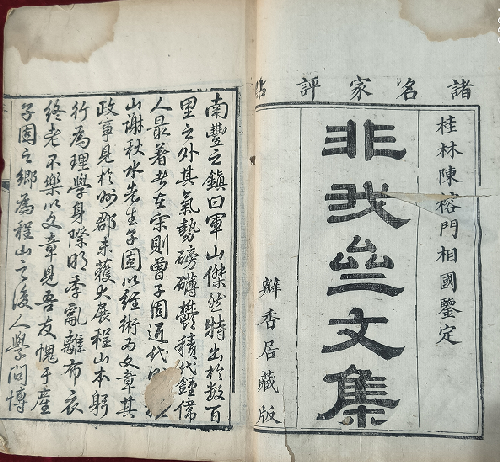 諸名家評點
桂林陳榕門相國鑒定
非我堂文集
辭香居藏版
南豐之鎮曰軍山傑然特出於數百
里之外其氣勢磅礴鬱積代鍾偉
人最著者在宋則曾子固近代則程
山謝秋水先生子固以經術为文章其
政事見於州郡未獲大展程山本躬
行為理學身際明季亂離布衣
終老不樂以文章見吾友惕于產
子固之鄉為程山之後人學問博